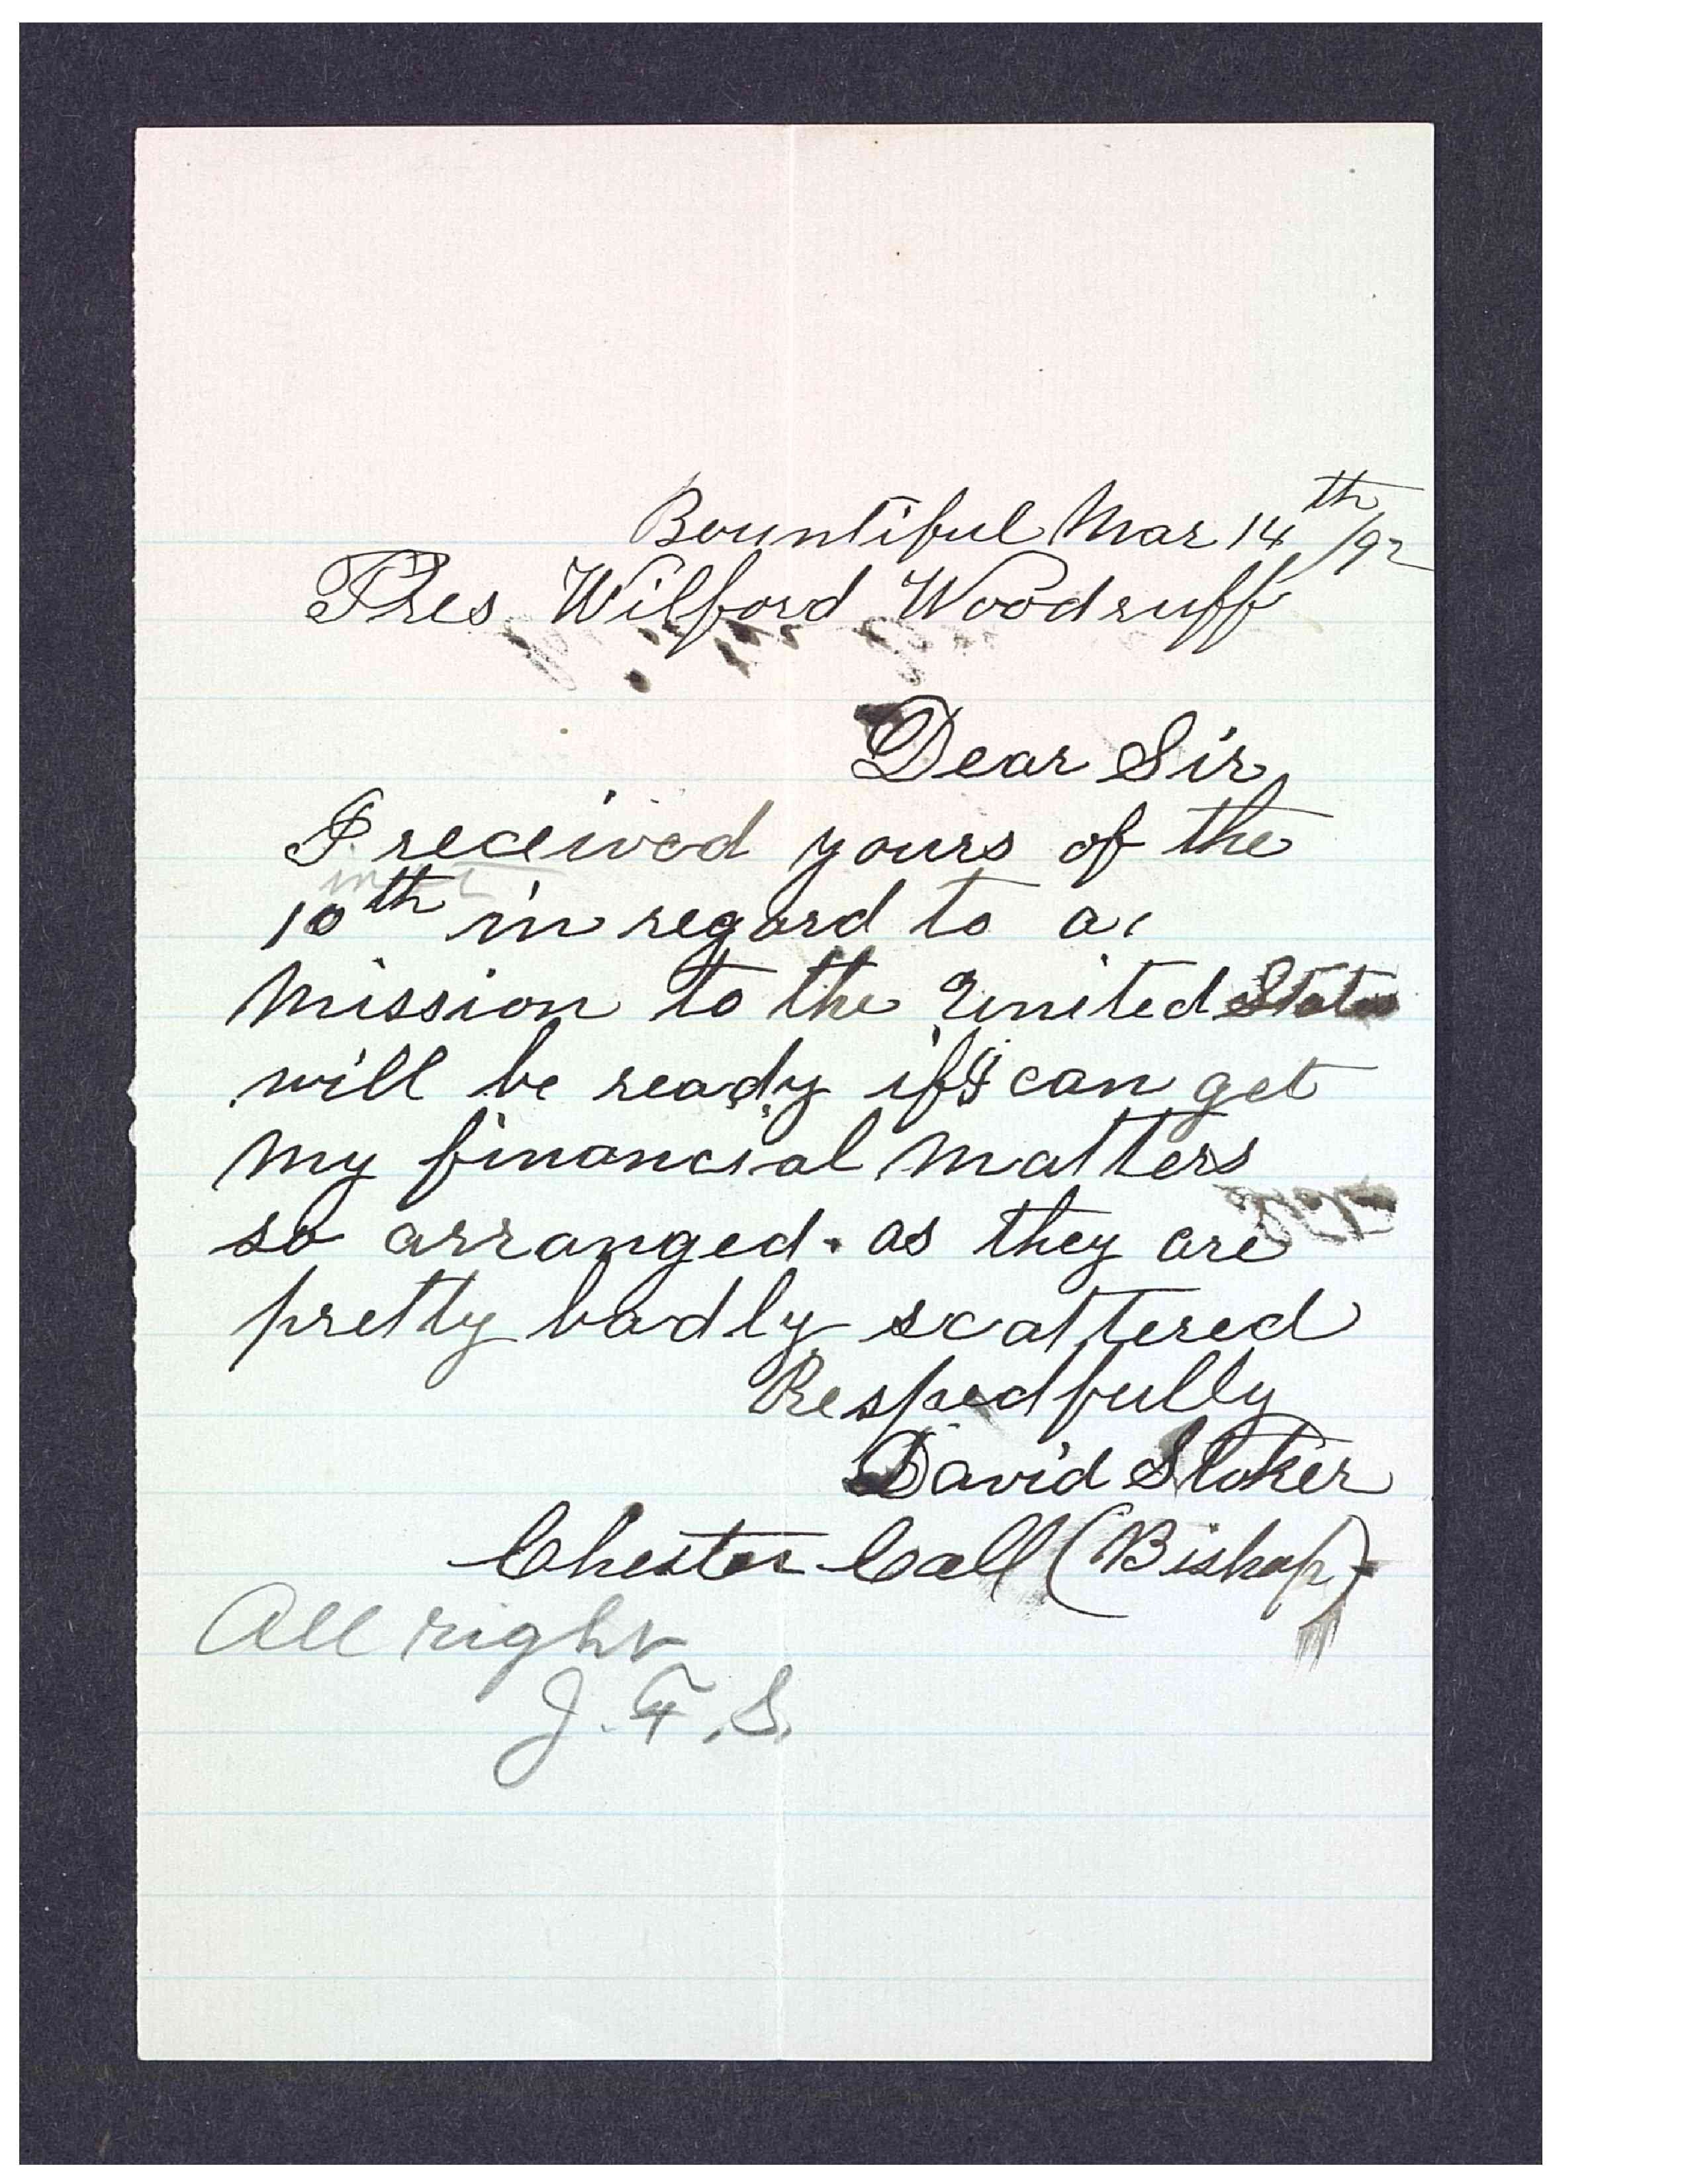 Bountiful Mar 14th/92
Pres Wilford Woodruff
Dear Sir,
I received yours of the
10th in regard to a
mission to the United States
will be ready if I can get
my financial matters
so arranged. as they are
pretty badly scattered
Respectfully
David Stoker
Chester Call (Bishop)
All right
J. F. S.